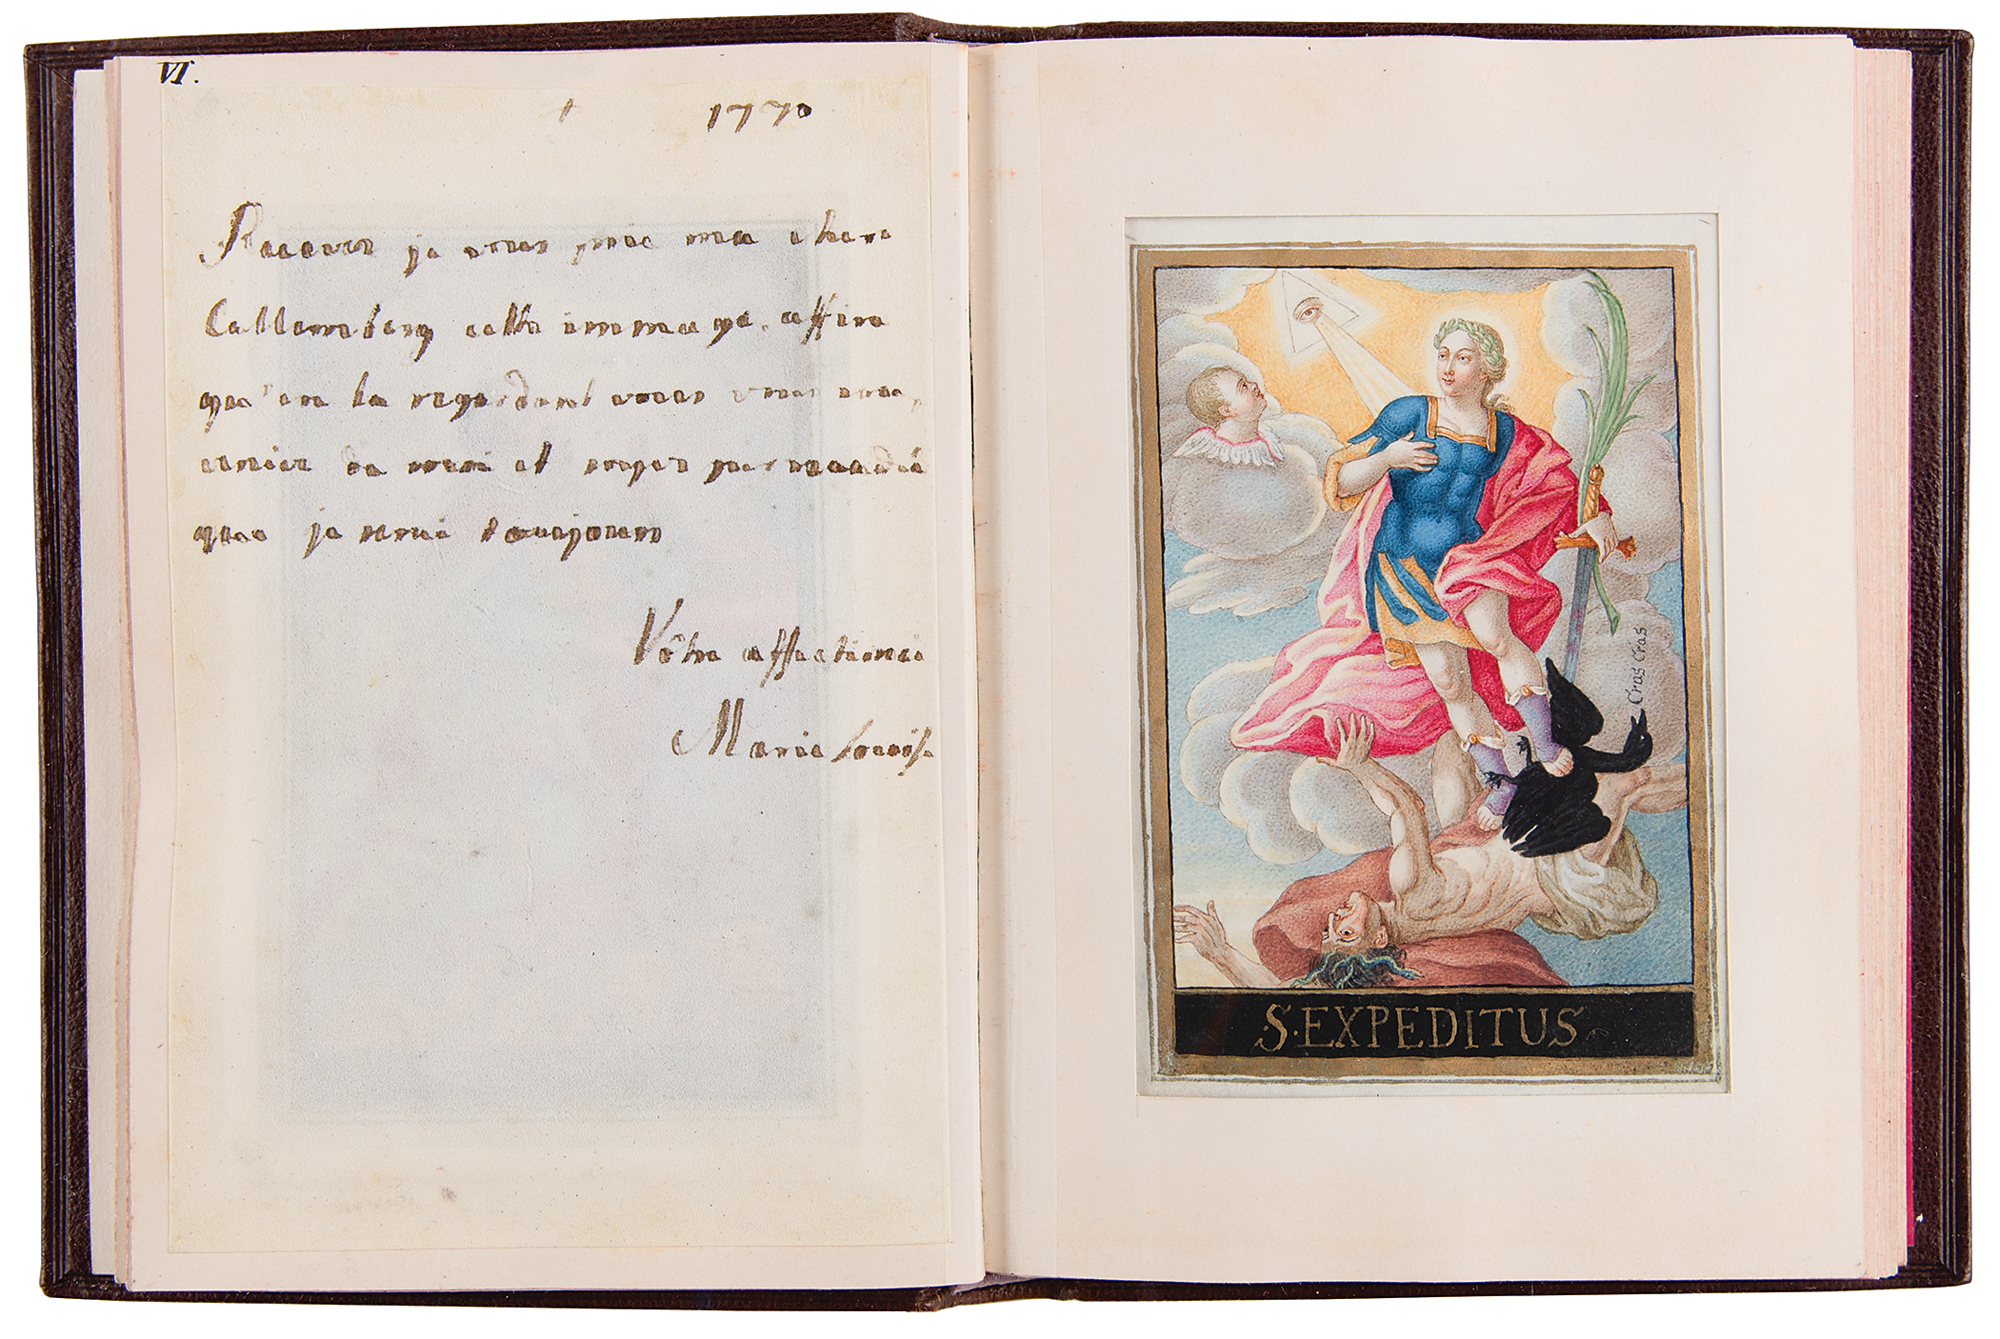 VI.
1770
Recever je vous prie ma chere
Callemberg cette immage, affin
qu'en la regardant vous vous sou,
venier de moi et soyer persuadée
que je serai toujours
Vôtre affectionée
Marie Louise
Cras Cras
S. EXPEDITUS